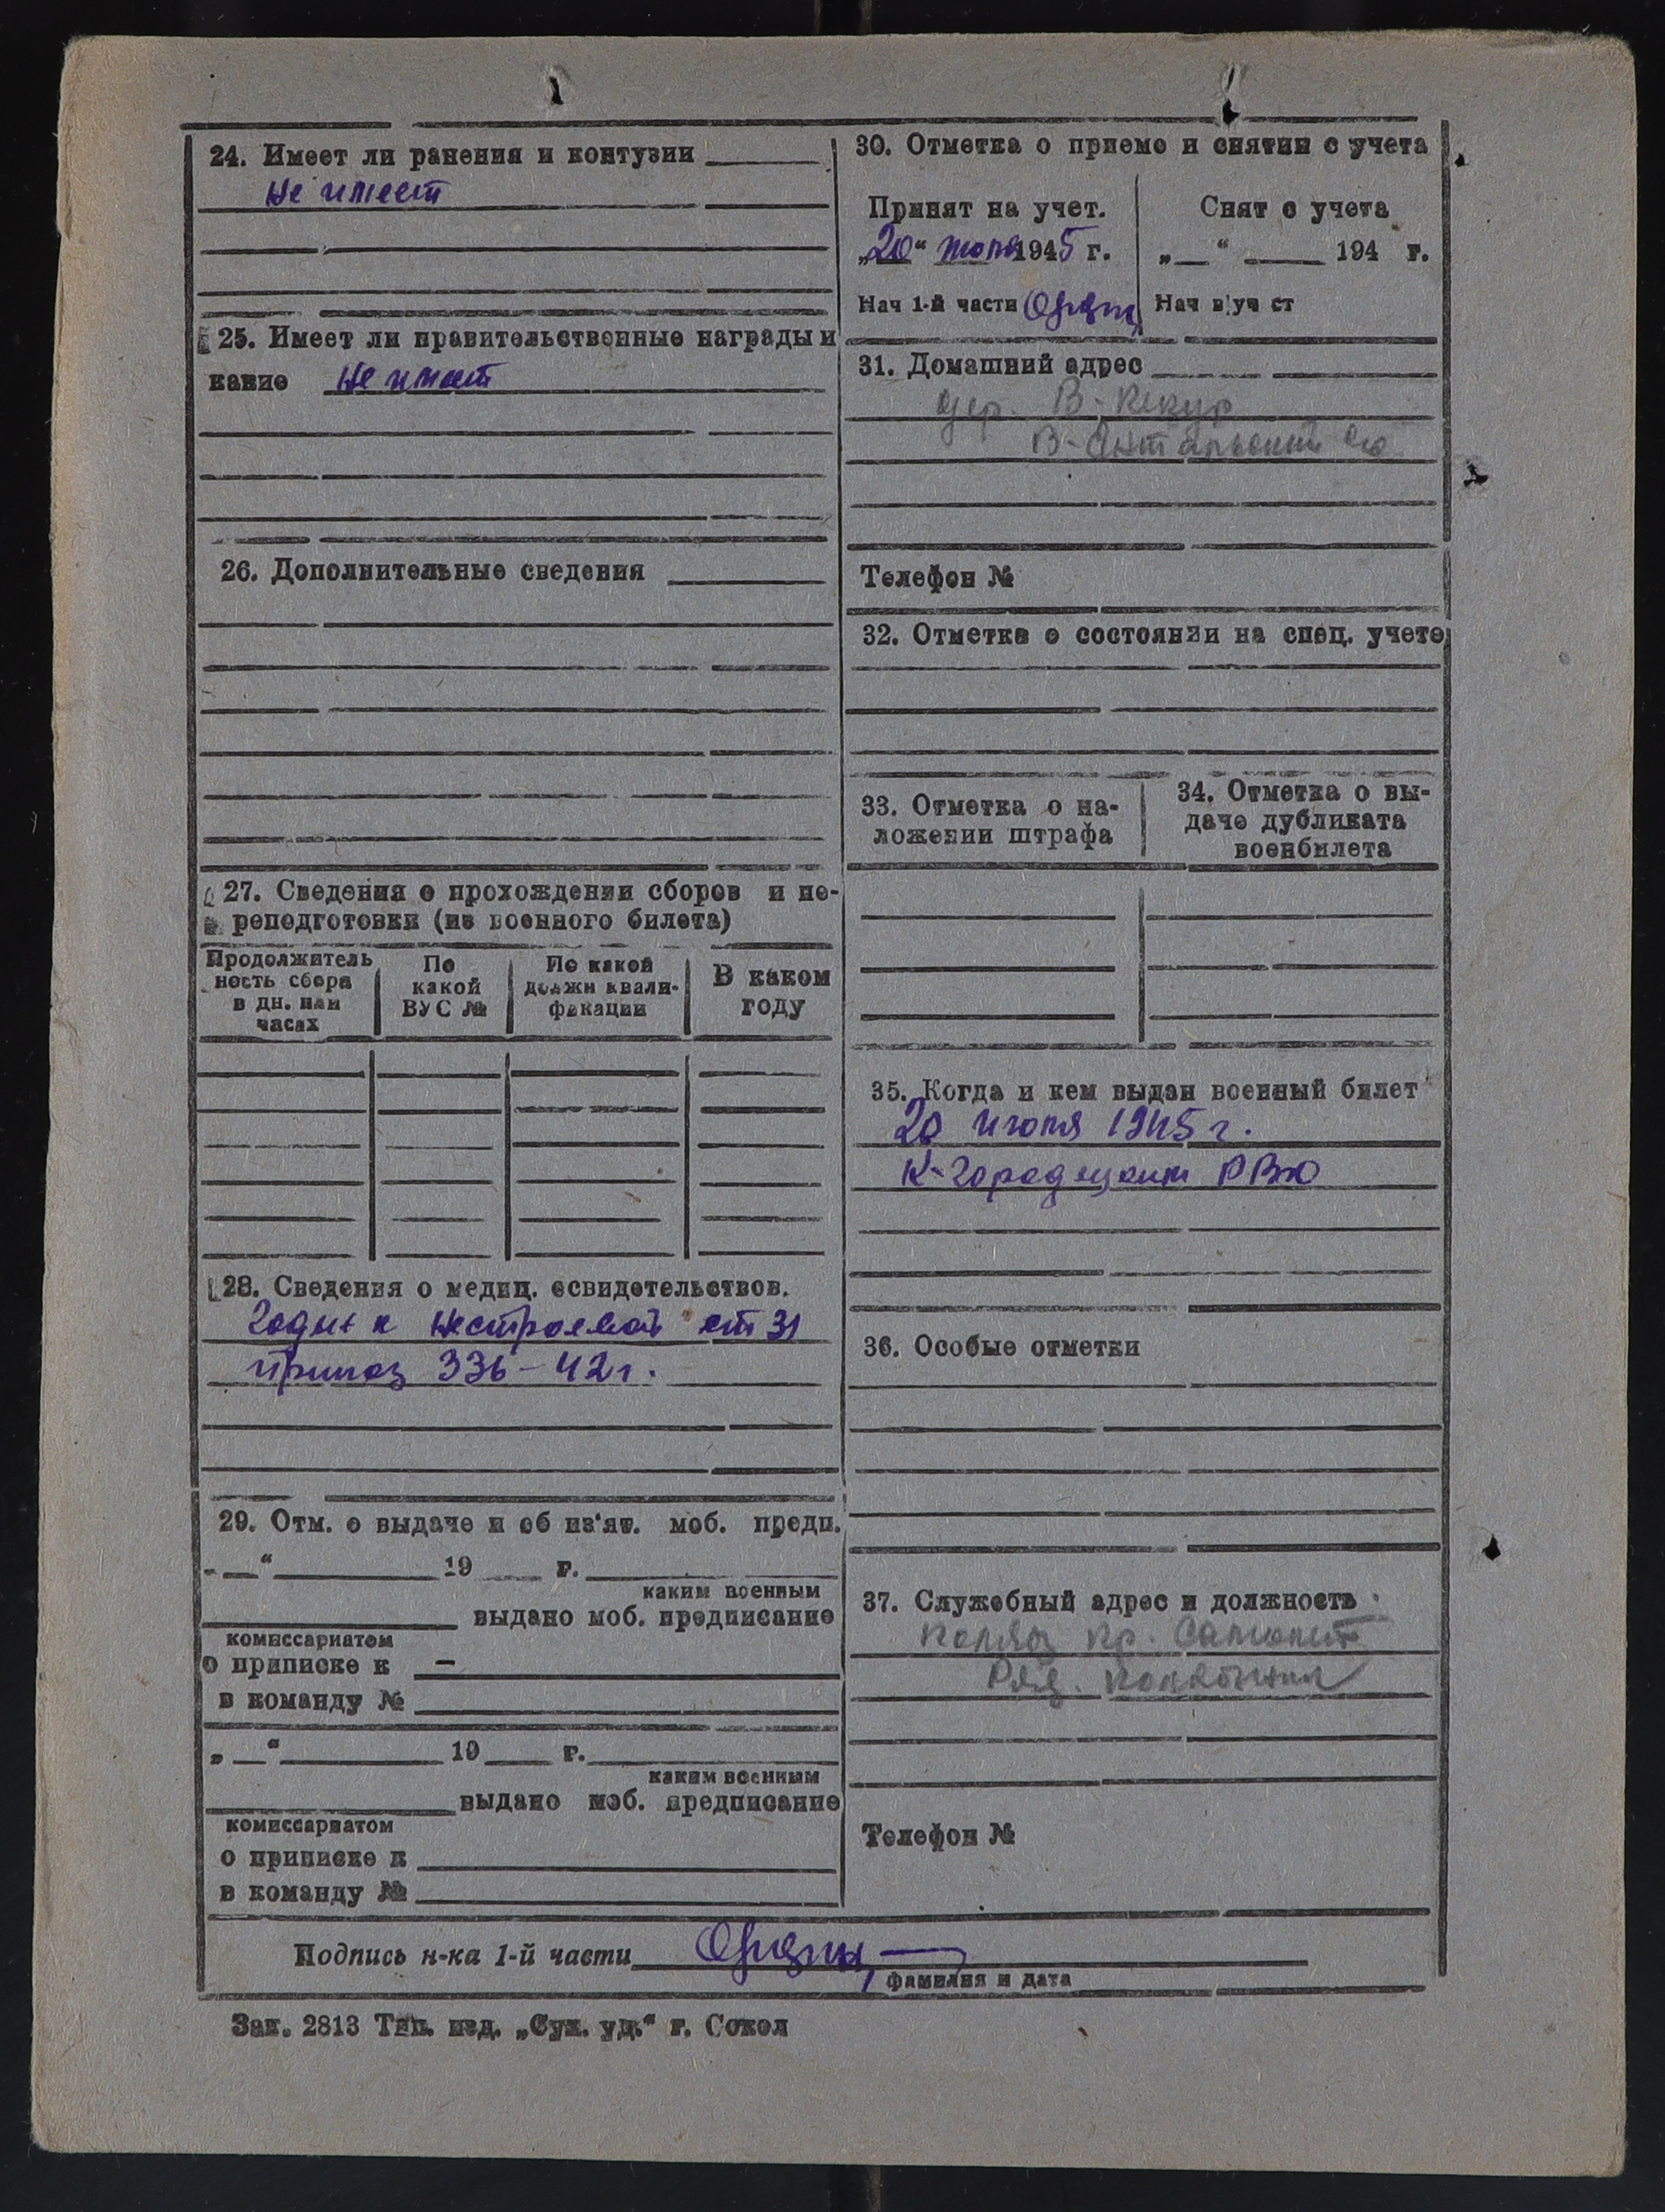 24. Имеет ли ранения и контузии
Не имеет
25. Имеет ли правительственные награды и
какие Не имеет
26. Дополнительные сведения
27. Сведения о прохождении сборов и пе-
реподготовки (из военного билета)
Продолжитель
ность сбора
в дн. или
часах
По
какой
ВУС №
По какой
должн квали-
фикации
В каком
году
28. Сведения о медиц. освидетельствов.
Годен к нестроевой ст 31
приказ 336-42г.
29. Отм. о выдаче и об из'ят. моб. предп.
„ “ 19 г.
каким военным
выдано моб. предписание
комиссариатом
о приписке к —
в команду №
„ “ 19 г.
каким военным
выдано моб. предписание
комиссариатом
о приписке к
в команду №
30. Отметка о приеме и снятии с учета
Принят на учет.
„20“ июля 1945 г.
Нач 1-й части
Снят с учета
„ “ 194 г.
Нач в/уч ст
31. Домашний адрес
дер. В-Кекур
В- с/с
Телефон №
32. Отметка о состоянии на спец. учете
33. Отметка о на-
ложении штрафа
34. Отметка о вы-
даче дубликата
военбилета
35. Когда и кем выдан военный билет
20 июля 1945 г.
К-Городецким РВК
36. Особые отметки
37. Служебный адрес и должность
колхоз Кр.
Ряд. колхозник
Телефон №
Подпись н-ка 1-й части
фамилия и дата
Зак. 2813 Тип. изд. „Сух. уд.“ г. Сокол